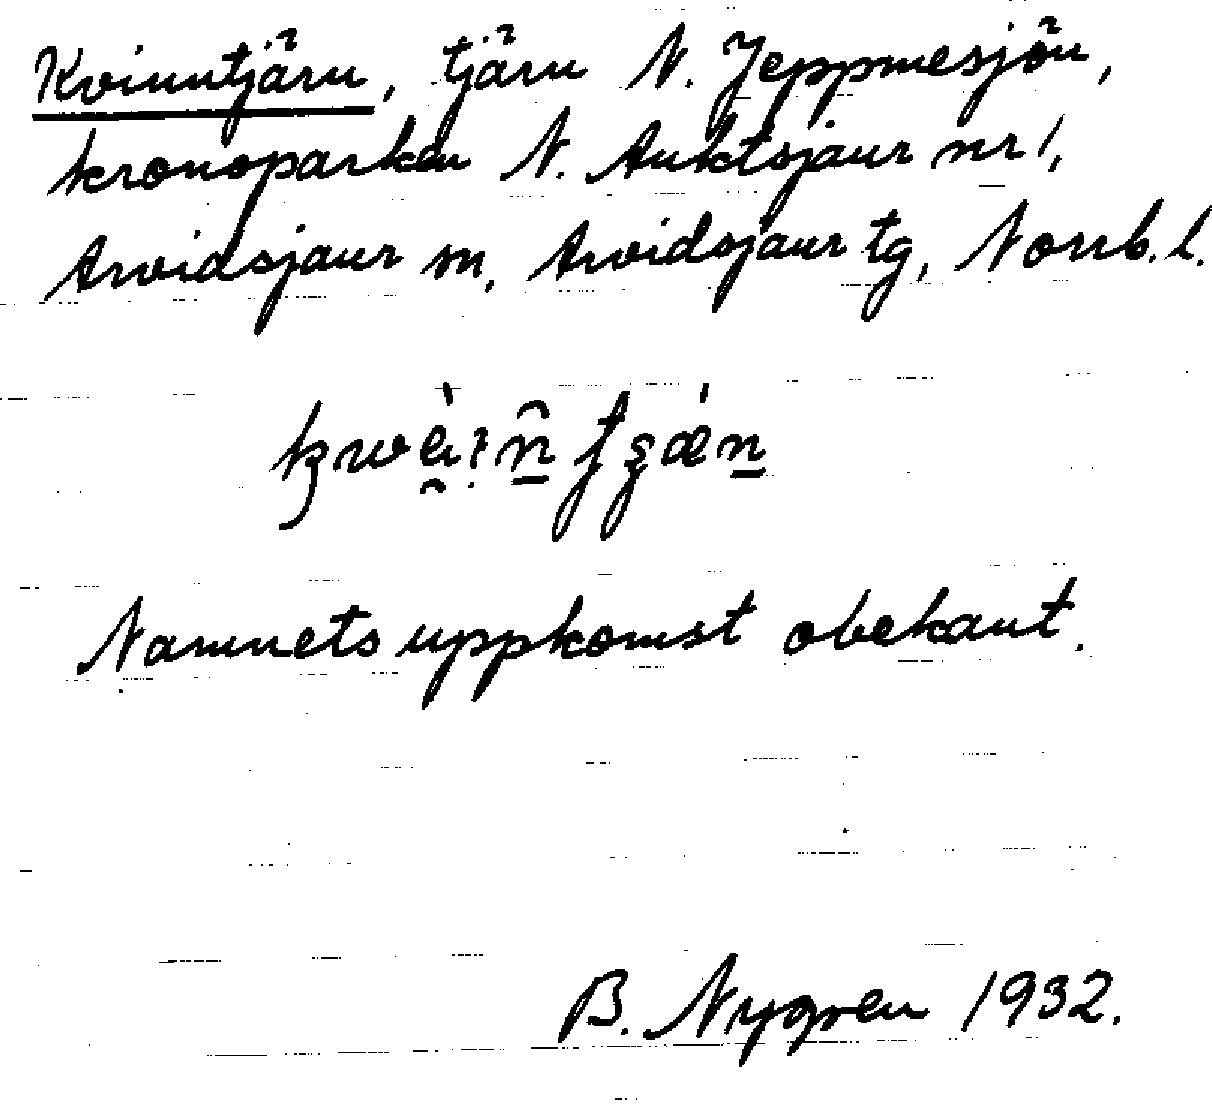 Kvinntjärn, tjärn N. Jeppmesjön,
kronoparken N. Auktsjaur nr 1,
Arvidsjaur sn, Arvidsjaur tg, Norrb. l.
Namnets uppkomst obekant.
B. Nygren 1932.